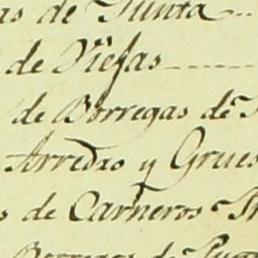 as de Junta
de Viejas
de Borregas de
Arredro y Grues
s de Carneros
Borregas de